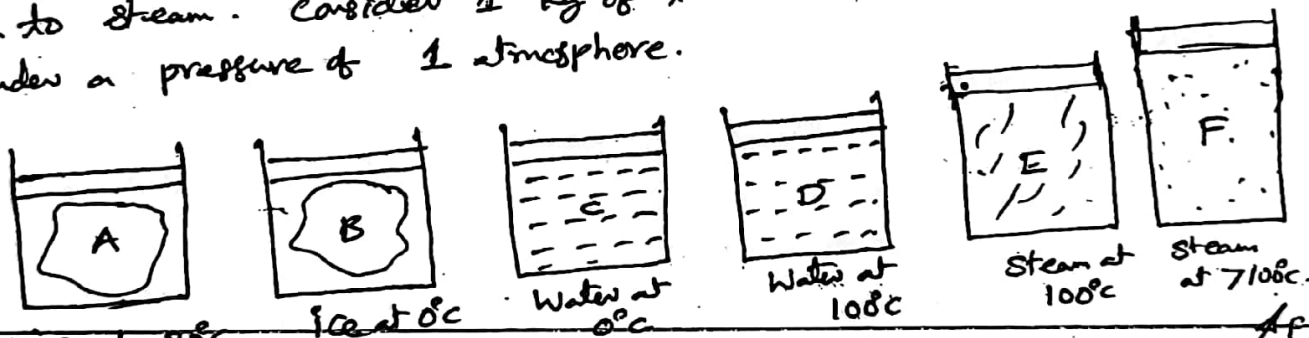 to steam. Consider 1 kg of
a pressure of 1 atmosphere.
A B C D E F.
ice at 0°C
Water at
0°C
Water at
100°C
Steam at
100°C
Steam
at >100°C.